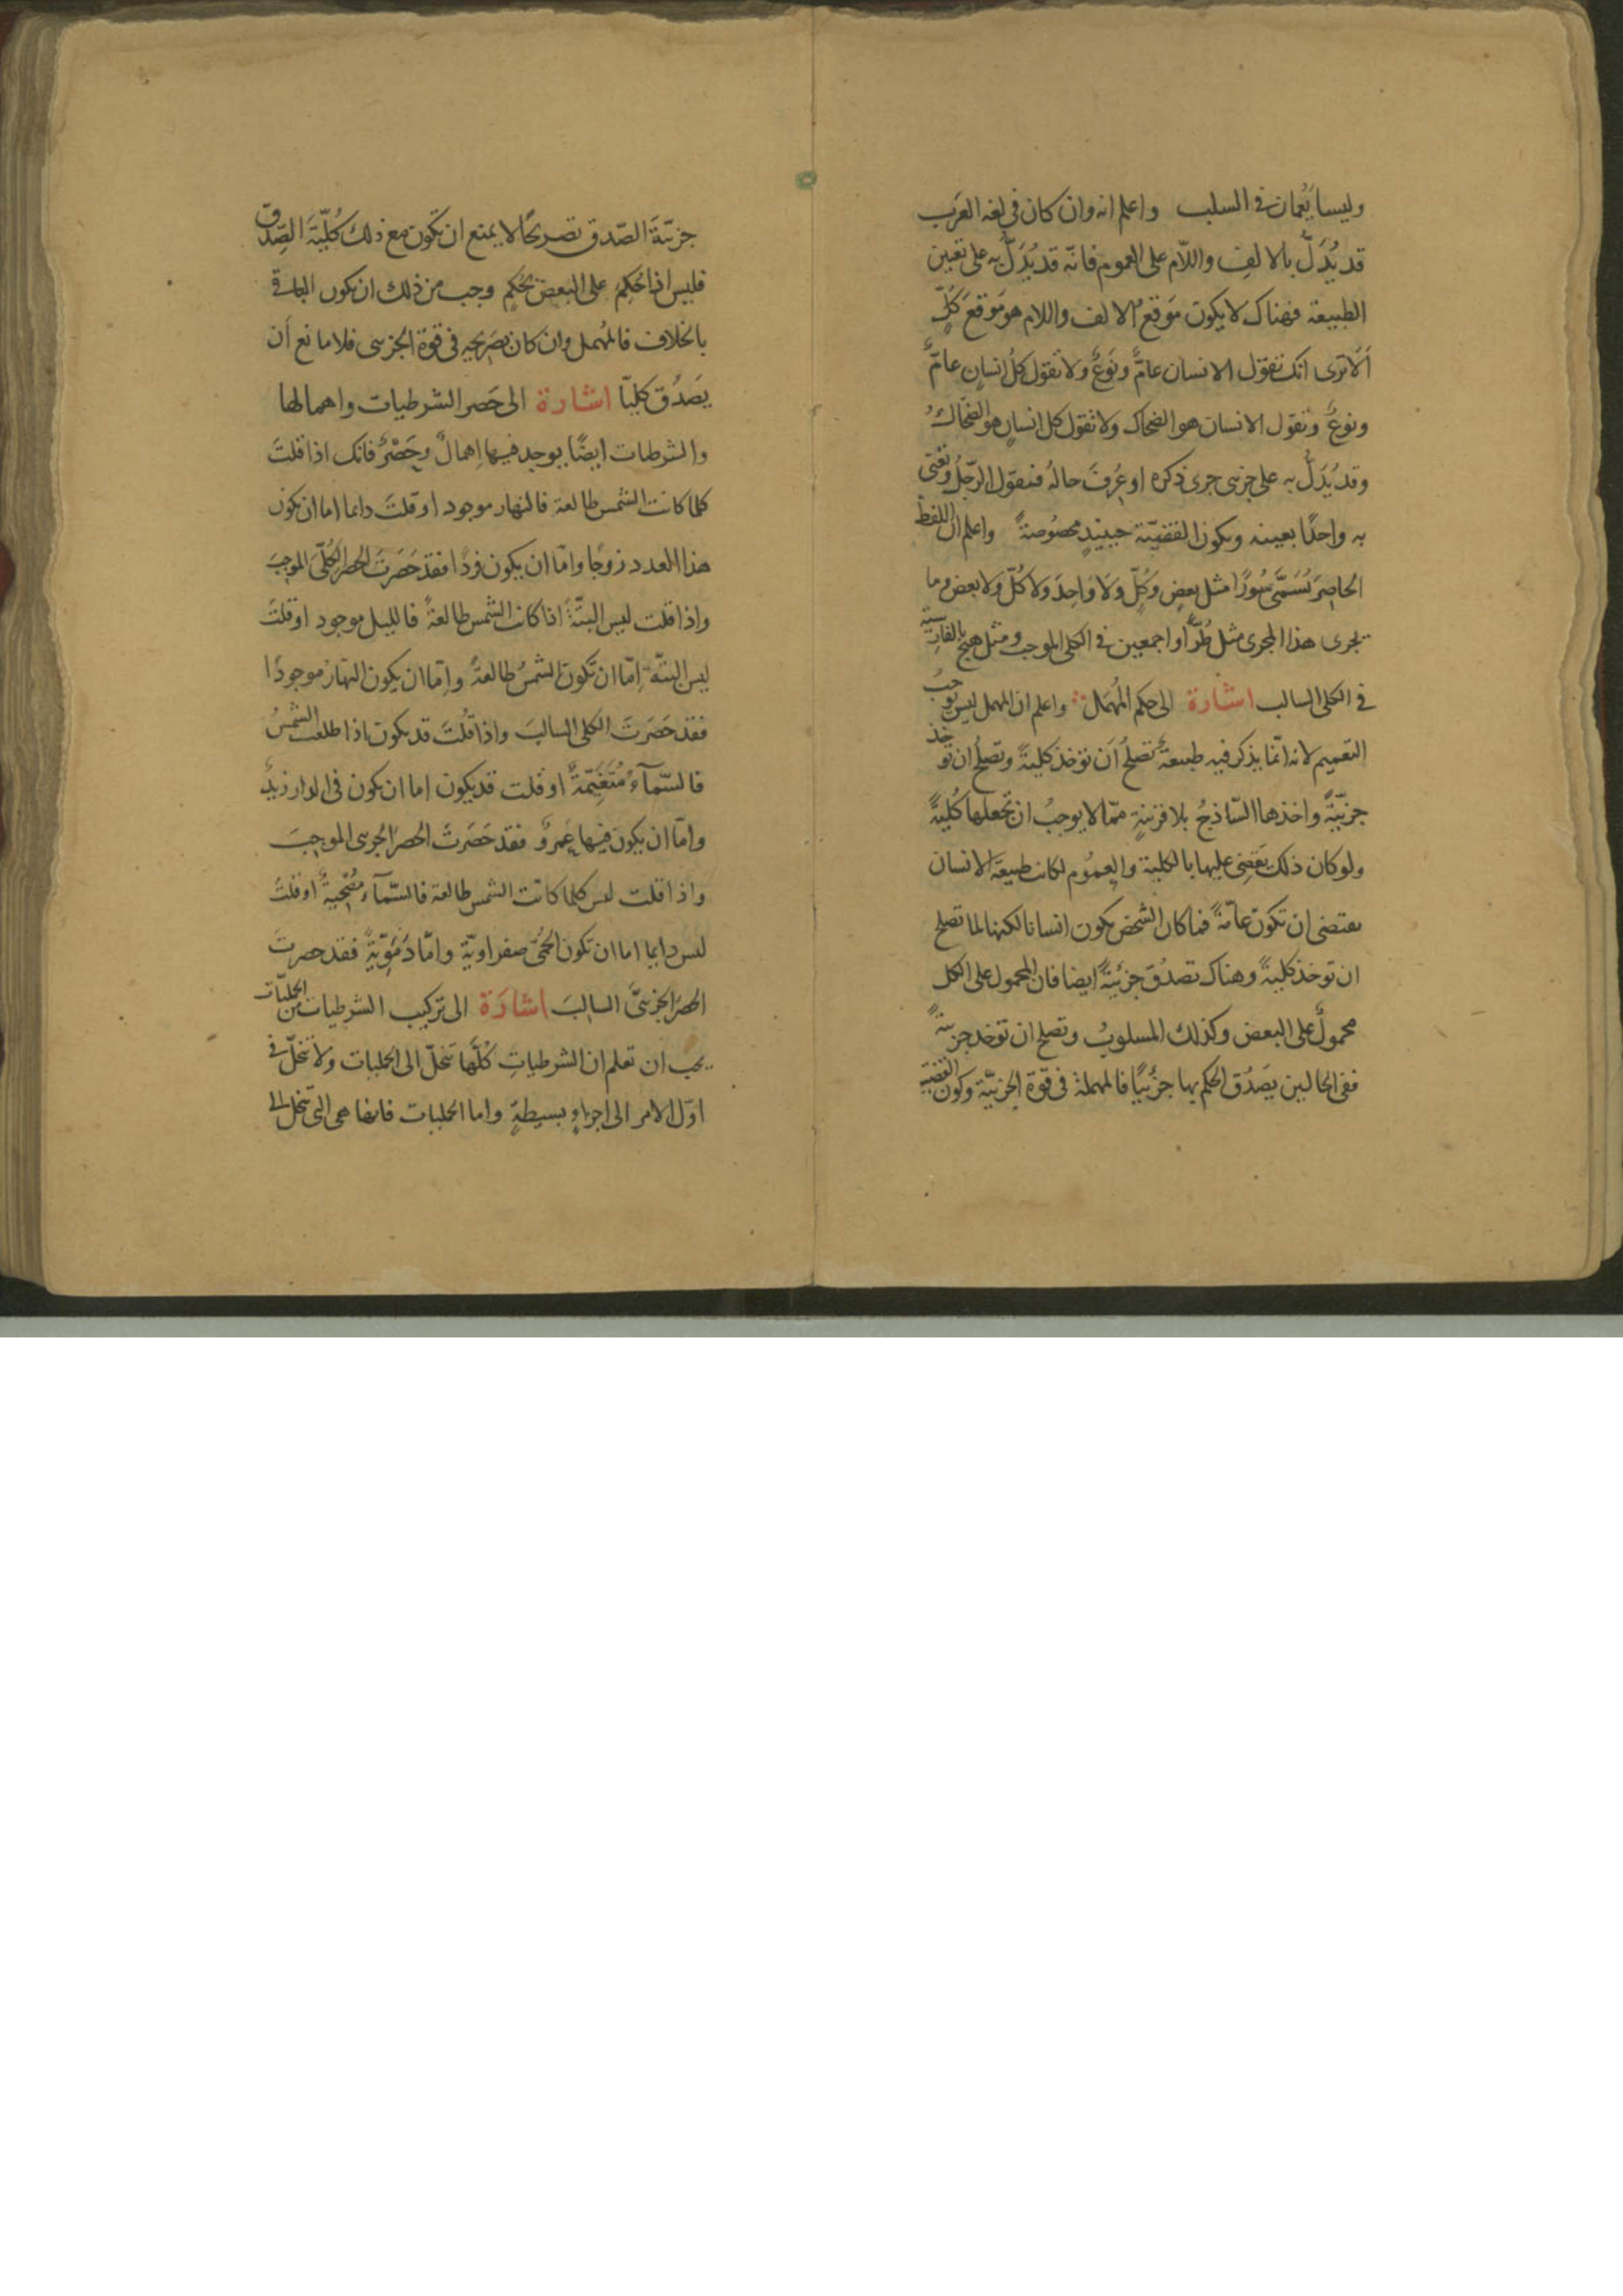 وليسا يَعُمان في السلب واعلم انه وان كان في لغة العَرب
قد يُدَلّ بالالف واللّام على العموم فانّه قد يُدَلّ به على تعيين
الطبيعة فهناك لا يكون مَوقع الالف واللام هو مَوقعَ كُلّ
اَلا ترى انك تقول الانسان عامٌّ ونَوعٌ ولا تقول كلُ انسانٍ عامٌّ
ونوعٌ وتقول الانسان هو الضحاك ولا تقول كل انسانٍ هو الضحّاكُ
وقد يُدَلُّ به على جزئى جرى ذكره او عُرِفَ حالهُ فنقول الرّجلُ ونَعْنى
به واحدًا بعينه وتكون القضيّة حينئِذٍ مخصُوصةً واعلم ان اللفظ
الحاصِرَ يُسَمَّى سُورًا مثل بعضٍ وَكُلّ وَلا وَاحِدَ ولا كُلّ ولا بعض وما
يجرى هذا المجرى مثل طُرّاً واجمعين في الكلى الموجب ومثل هيچ بالفارسيّة
في الكلى السالب اشارة الى حكم المُهمَل واعلم ان المهمل ليس يُوجبُ
التعميم لانه انّما يذكر فيه طبيعةٌ تصلحُ اَن تؤخذ كليةً وتصلحُ ان تؤخذ
جزئيّةً واخذها السّاذجُ بلا قرينةٍ ممّا لا يوجبُ ان تجعلها كُليةً
ولو كان ذلك يَقضِى عليها بالكلية والعمُوم لكانت طبيعة الانسان
يقتضى ان تكونَ عامّةً فما كان الشخص يكون انسانا لكنها لما تصلح
ان توخذ كليةً وهناك تصدُق جزئيةً ايضا فان المحمول على الكل
محمولٌ على البعض وكذلك المسلوبُ وتصلح ان توخذ جزئيةً
ففى الحالين يَصَدُق الحكم بها جزئيًا فالمهملة فى قوة الجزئيّة وكون القضية
جزئيّةَ الصّدق تصريحًا لا يمنع ان تكون مع ذلك كُليّةَ الصِّدق
فليس اذا حُكِمَ على البعض بحُكمٍ وجب من ذلك ان يكون الباقى
بالخلاف فالمُهمل وان كان بصَريحِه فى قوة الجُزئى فلا مانع اَن
يَصَدُق كليّاً اشارة الى حَصر الشرطيات واهمالها
والشرطيات ايضًا يوجد فيها اِهمالٌ وحَصْرٌ فانك اذا قلتَ
كلما كانت الشمس طالعة فالنهار موجود او قلتَ دايما اما ان يكون
هذا العدد زوجًا وامّا ان يكون فردًا فقد حَصَرتَ الحصر الكُلّىَ الموجبَ
واذا قلت ليس البتّةَ اذا كانت الشمس طالعةً فالليل موجود او قلتَ
ليس البتّة اِمّا ان تكون الشمسُ طالعةً واِمّا ان يكون النهارُ موجودًا
فقد حَصَرتَ الكلى السالبَ واذا قلُتَ قد يكون اذا طلعت الشمسُ
فالسّماءُ مُتَغيّمةٌ او قلت قد يكون اما ان يكون فى الدار زيدٌ
وامّا ان يكون فيها عَمروٌ فقد حَصَرتَ الحصرَ الجزئى الموجبَ
واذا قلت ليس كلما كانت الشمس طالعة فالسّماءُ مُصْحِيةٌ او قلتَ
ليس دايما اما ان تكون الحُمَّى صفراويّة وامّا دَمَويّةً فقد حصرتَ
الحصرَ الجزئىَّ السالِبَ اشارَة الى تركيب الشرطيات من الحمليّات
يجب ان تعلم ان الشرطياتِ كُلَّها تنحلّ الى الحمليات ولا تنحَلّ فى
اوّل الامر الى اجزاءٍ بسيطةٍ واما الحمليات فانها هى التى تنحل الى